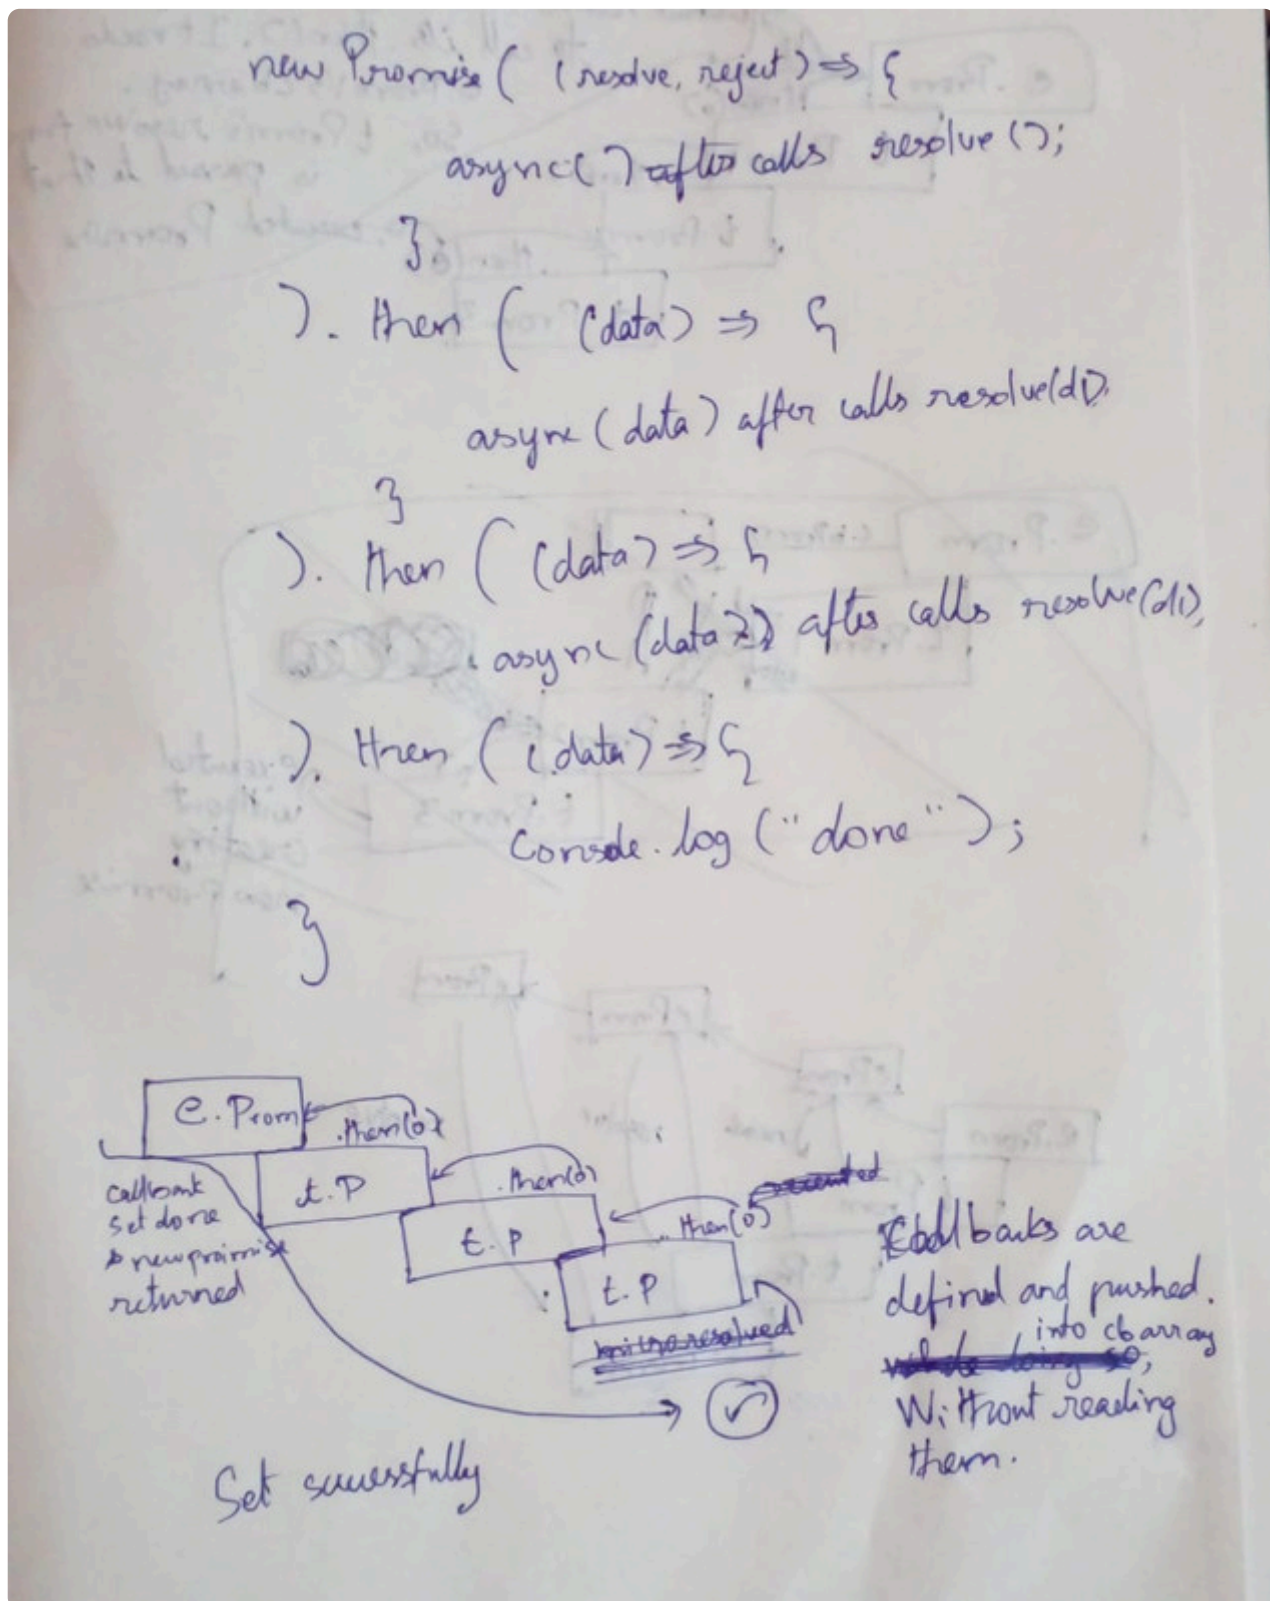 new Promise ( (resolve, reject) => {
async() after calls resolve ();
}
). then ( (data) => {
async (data) after calls resolve(d1),
}
). then ( (data) => {
async (data) after calls resolve(d1),
). then ( (data) => {
console.log (" done " );
}
e. Prom
.then(0)
t. P
.then(0)
t. P
.then(0)
t. P
callback
set done
& new promise
returned
Callbacks are
defined and pushed.
into cb array
Without reading
them.
Set successfully